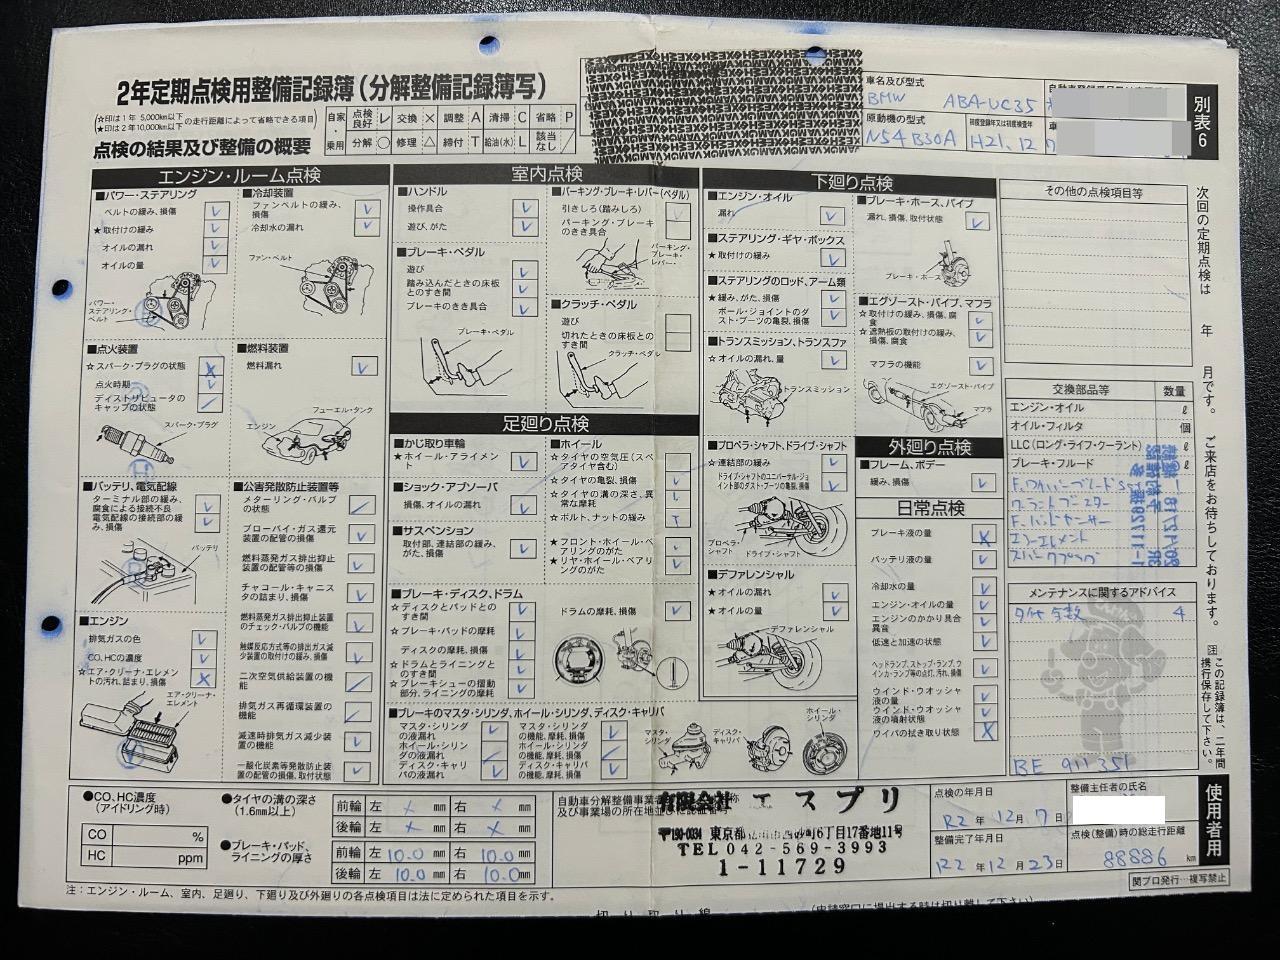 2年定期点検用整備記録簿(分解整備記録簿写)
☆印は1年 5,000km以下
★印は2年10,000km以下
の走行距離によって省略できる項目
点検の結果及び整備の概要
自家・乗用
点検良好 レ 交換 × 調整 A 清掃 C 省略 P
分解 ○ 修理 △ 締付 T 給油(水) L 該当なし /
車名及び型式
BMW ABA-UC35
原動機の型式
N54B30A
初度登録年又は初度検査年
H21.12
別表6
エンジン・ルーム点検
■パワー・ステアリング
ベルトの緩み、損傷
★取付けの緩み
オイルの漏れ
オイルの量
パワー・ステアリング・ベルト
■冷却装置
ファンベルトの緩み、損傷
冷却水の漏れ
ファン・ベルト
■点火装置
☆スパーク・プラグの状態
点火時期
ディストリビュータのキャップの状態
スパーク・プラグ
■燃料装置
燃料漏れ
フューエル・タンク
エンジン
■バッテリ、電気配線
ターミナル部の緩み、腐食による接続不良
電気配線の接続部の緩み、損傷
バッテリ
■公害発散防止装置等
メターリング・バルブの状態
ブローバイ・ガス還元装置の配管の損傷
燃料蒸発ガス排出抑止装置の配管等の損傷
チャコール・キャニスタの詰まり、損傷
燃料蒸発ガス排出抑止装置のチェック・バルブの機能
触媒反応方式等の排出ガス減少装置の取付けの緩み、損傷
二次空気供給装置の機能
排気ガス再循環装置の機能
減速時排気ガス減少装置の機能
一酸化炭素等発散防止装置の配管の損傷、取付状態
■エンジン
排気ガスの色
CO、HCの濃度
☆エア・クリーナ・エレメントの汚れ、詰まり、損傷
エア・クリーナ・エレメント
室内点検
■ハンドル
操作具合
遊び、がた
■ブレーキ・ペダル
遊び
踏み込んだときの床板とのすき間
ブレーキのきき具合
ブレーキ・ペダル
■パーキング・ブレーキ・レバー(ペダル)
引きしろ(踏みしろ)
パーキング・ブレーキのきき具合
パーキング・ブレーキ・レバー
■クラッチ・ペダル
遊び
切れたときの床板とのすき間
クラッチ・ペダル
足廻り点検
■かじ取り車輪
★ホイール・アライメント
■ショック・アブソーバ
損傷、オイルの漏れ
■サスペンション
取付部、連結部の緩み、がた、損傷
■ホイール
☆タイヤの空気圧(スペアタイヤ含む)
☆タイヤの亀裂、損傷
☆タイヤの溝の深さ、異常な摩耗
☆ボルト、ナットの緩み
★フロント・ホイール・ベアリングのがた
★リヤ・ホイール・ベアリングのがた
■ブレーキ・ディスク、ドラム
☆ディスクとパッドとのすき間
☆ブレーキ・パッドの摩耗
ディスクの摩耗、損傷
☆ドラムとライニングとのすき間
☆ブレーキシューの摺動部分、ライニングの摩耗
ドラムの摩耗、損傷
■ブレーキのマスタ・シリンダ、ホイール・シリンダ、ディスク・キャリパ
マスタ・シリンダの液漏れ
ホイール・シリンダの液漏れ
ディスク・キャリパの液漏れ
マスタ・シリンダの機能、摩耗、損傷
ホイール・シリンダの機能、摩耗、損傷
ディスク・キャリパの機能、摩耗、損傷
マスタ・シリンダ
ディスク・キャリパ
ホイール・シリンダ
下廻り点検
■エンジン・オイル
漏れ
■ステアリング・ギヤ・ボックス
★取付けの緩み
■ステアリングのロッド、アーム類
★緩み、がた、損傷
ボール・ジョイントのダスト・ブーツの亀裂、損傷
■トランスミッション、トランスファ
☆オイルの漏れ、量
トランスミッション
■プロペラ・シャフト、ドライブ・シャフト
☆連結部の緩み
ドライブ・シャフトのユニバーサル・ジョイント部のダスト・ブーツの亀裂、損傷
プロペラ・シャフト
ドライブ・シャフト
■デファレンシャル
★オイルの漏れ
★オイルの量
デファレンシャル
■ブレーキ・ホース、パイプ
漏れ、損傷、取付状態
ブレーキ・ホース
■エグゾースト・パイプ、マフラ
☆取付けの緩み、損傷、腐食
☆遮熱板の取付けの緩み、損傷、腐食
マフラの機能
エグゾースト・パイプ
マフラ
外廻り点検
■フレーム、ボデー
緩み、損傷
日常点検
ブレーキ液の量
バッテリ液の量
冷却水の量
エンジン・オイルの量
エンジンのかかり具合、異音
低速と加速の状態
ヘッドランプ、ストップ・ランプ、ウインカ・ランプ等の点灯、汚れ、損傷
ウインド・ウオッシャ液の量
ウインド・ウオッシャ液の噴射状態
ワイパの拭き取り状態
その他の点検項目等
交換部品等 数量
エンジン・オイル ℓ
オイル・フィルタ 個
LLC(ロング・ライフ・クーラント) ℓ
ブレーキ・フルード ℓ
エアーエレメント
スパークプラグ
メンテナンスに関するアドバイス
4
BE 911351
次回の定期点検は 年 月です。ご来店をお待ちしております。
注 この記録簿は、二年間携行保存して下さい。
使用者用
●CO、HC濃度(アイドリング時)
CO %
HC ppm
●タイヤの溝の深さ(1.6mm以上)
前輪 左 × mm 右 × mm
後輪 左 × mm 右 × mm
●ブレーキ・パッド、ライニングの厚さ
前輪 左 10.0 mm 右 10.0 mm
後輪 左 10.0 mm 右 10.0 mm
有限会社 エスプリ
〒190-0034 東京都
6丁目17番地11号
TEL 042-569-3993
1-11729
点検の年月日
R2年12月17日
整備完了年月日
R2年12月23日
整備主任者の氏名
点検(整備)時の総走行距離
88886 km
関プロ発行…複写禁止
注:エンジン・ルーム、室内、足廻り、下廻り及び外廻りの各点検項目は法に定められた項目を示す。
切り取り線